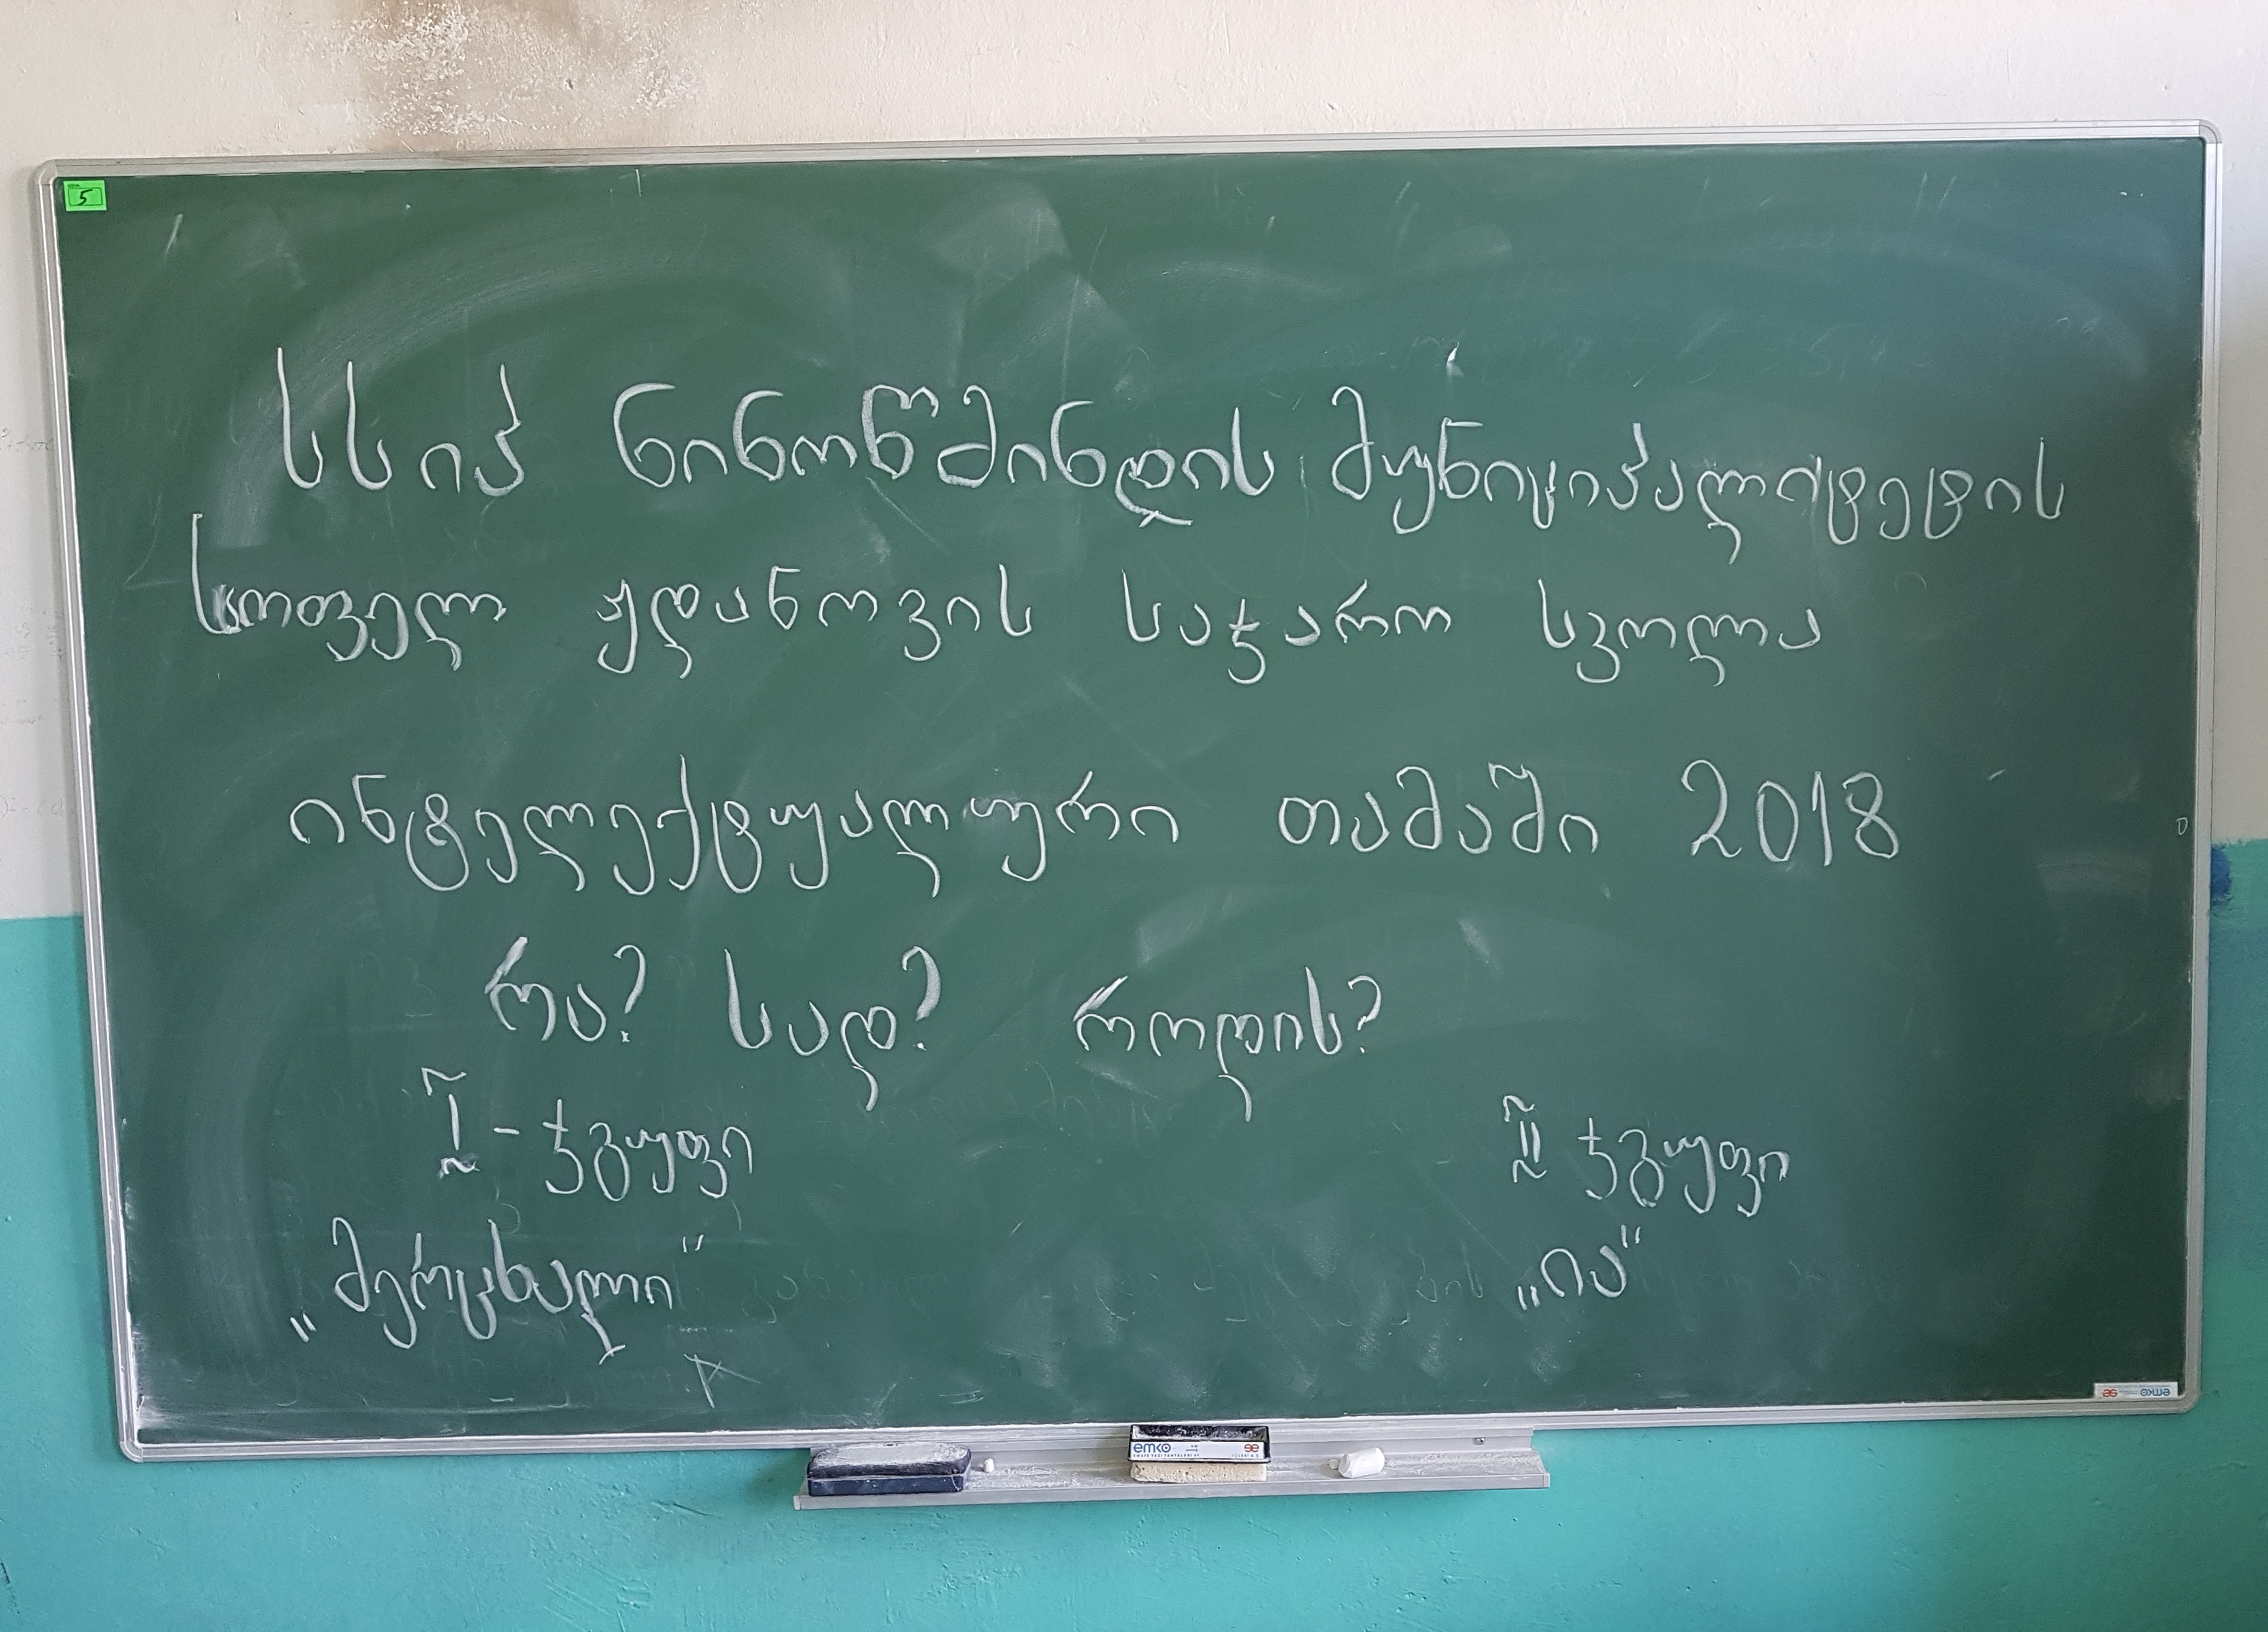 5
სსიპ ნინოწმინდის მუნიციპალიტეტის
სოფელ ჟდანოვის საჯარო სკოლა
ინტელექტუალური თამაში 2018
რა? სად? როდის?
I - ჯგუფი II ჯგუფი
„მერცხალი“ „ია“
emko